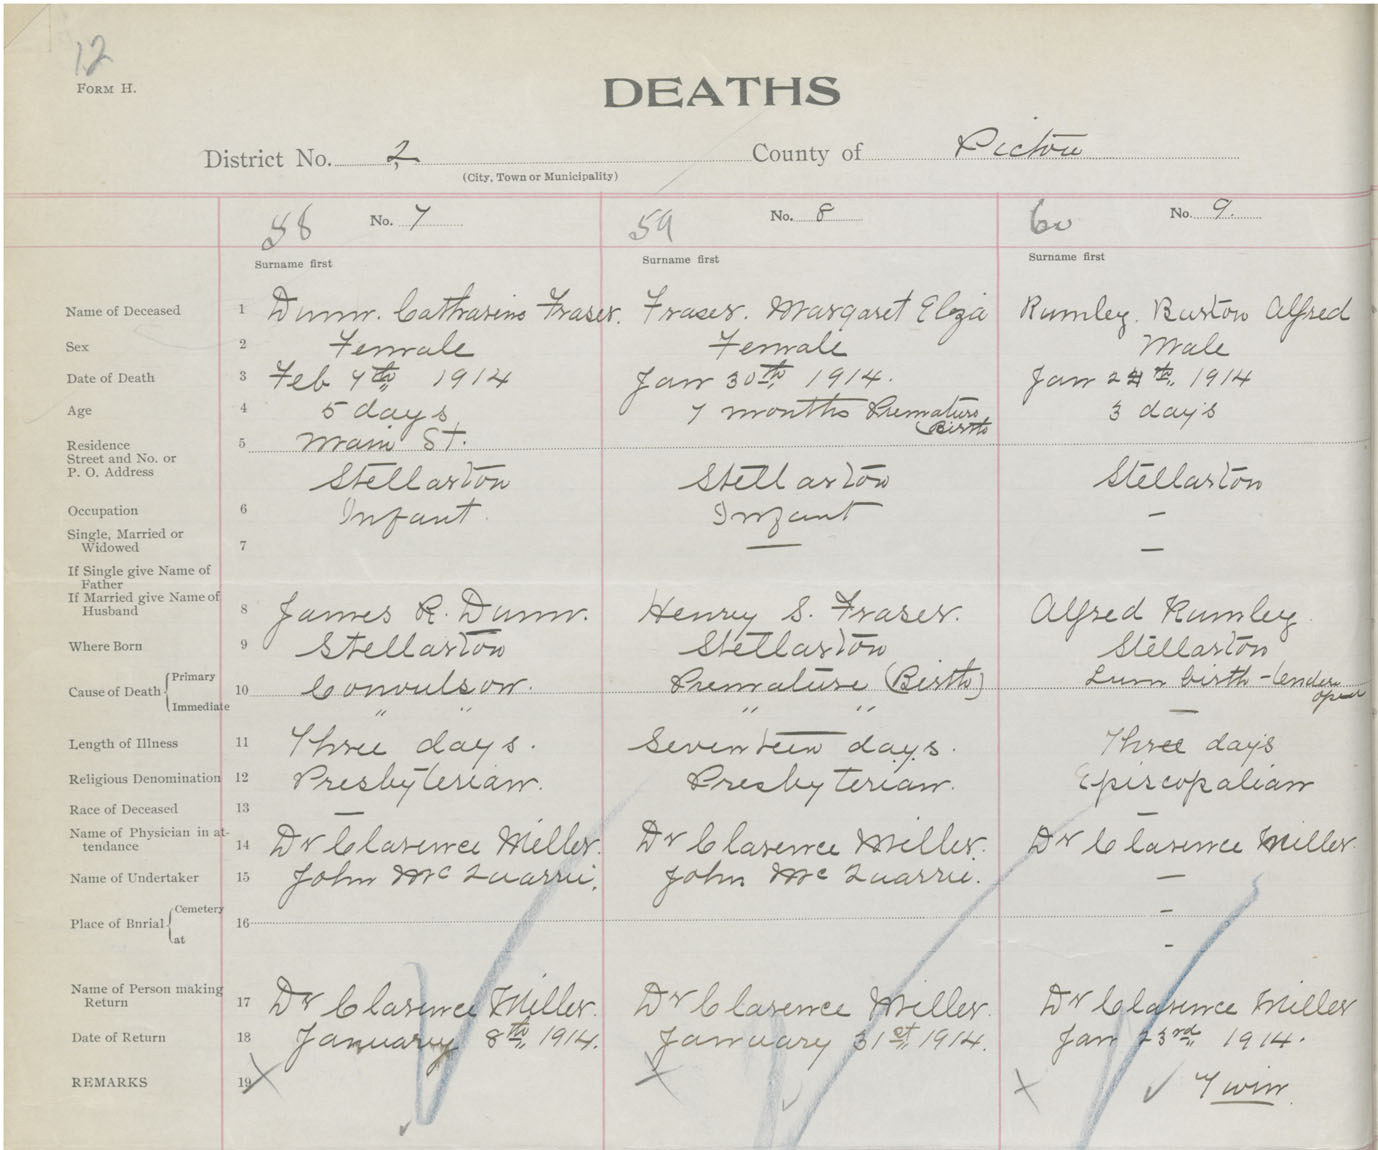 12
FORM H.
DEATHS
District No. 2
County of Pictou
(City, Town or Municipality)
58 No. 7
59 No. 8
60 No. 9.
Surname first
Surname first
Surname first
Name of Deceased 1 Dunn. Catharine Fraser. Fraser. Margaret Eliza Rumley. Burton Alfred
Sex 2 Female Female Male
Date of Death 3 Feb 7th 1914 Jan 30th 1914. Jan 24th 1914
Age 4 5 days 7 months Premature Birth 3 days
Residence 5 Main St.
Street and No. or
P. O. Address Stellarton Stellarton Stellarton
Occupation 6 Infant Infant –
Single, Married or
Widowed 7 — —
If Single give Name of
Father
If Married give Name of
Husband 8 James R. Dunn. Henry S. Fraser. Alfred Rumley
Where Born 9 Stellarton Stellarton Stellarton
Cause of Death Primary 10 Convulson. Premature (Birth) birth –
Immediate " " " " —
Length of Illness 11 Three days. Seventeen days. Three days
Religious Denomination 12 Presbyterian. Presbyterian. Episcopalian
Race of Deceased 13 — — —
Name of Physician in at-
tendance 14 Dr Clarence Miller. Dr Clarence Miller. Dr Clarence Miller
Name of Undertaker 15 John McQuarrie. John McQuarrie. —
Place of Bnrial Cemetery 16 -
at -
Name of Person making
Return 17 Dr Clarence Miller. Dr Clarence Miller. Dr Clarence Miller
Date of Return 18 January 8th 1914. January 31st 1914. Jan 23rd 1914.
REMARKS 19 Twin